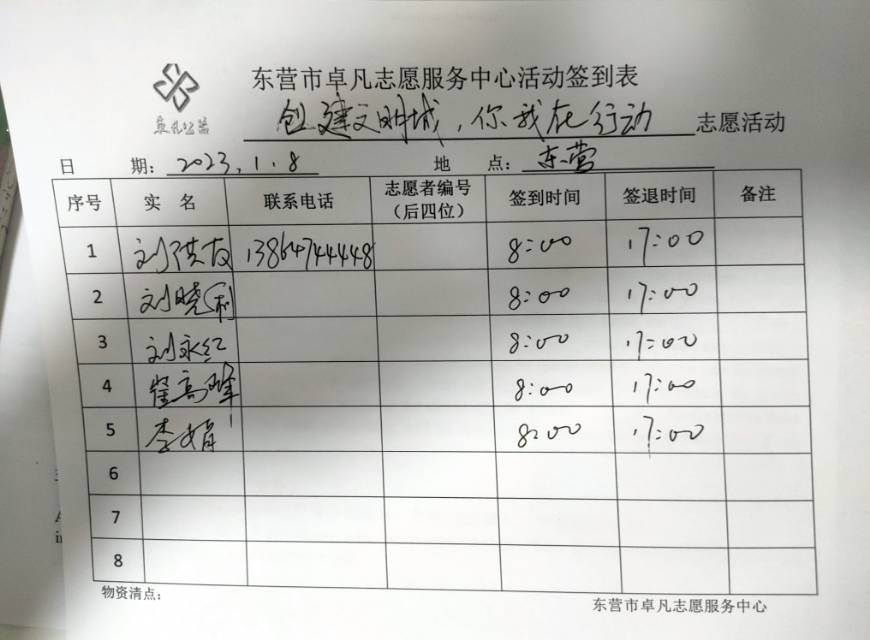 东营市卓凡志愿服务中心活动签到表
卓凡公益
创建文明城，你我在行动 志愿活动
日 期：2023.1.8 地 点：东营
序号 实 名 联系电话 志愿者编号（后四位） 签到时间 签退时间 备注
1 刘洪友 13864744448 8:00 17:00
2 刘晓利 8:00 17:00
3 刘永红 8:00 17:00
4 崔高峰 8:00 17:00
5 李娟 8:00 17:00
6
7
8
物资清点：
东营市卓凡志愿服务中心